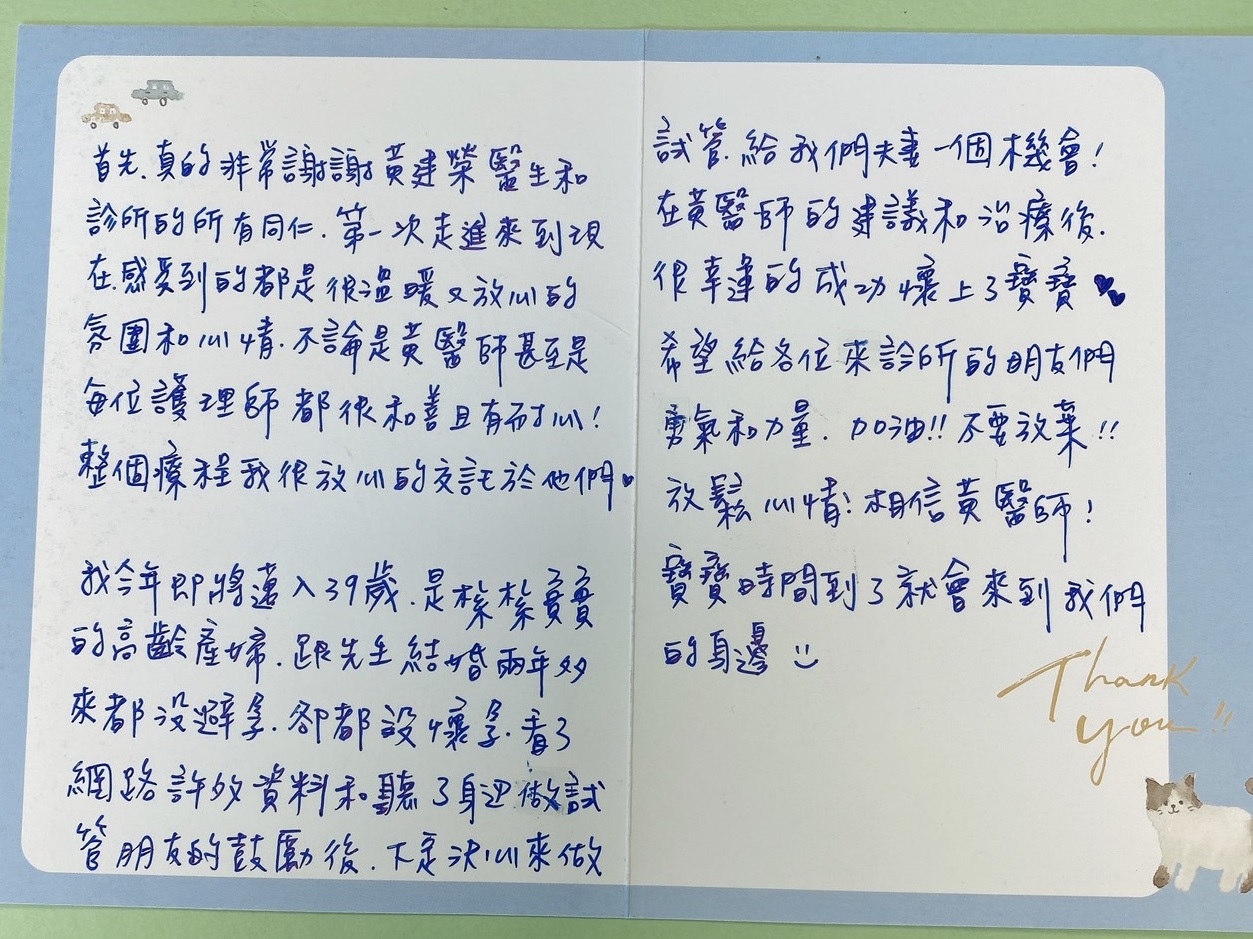 首先.真的非常謝謝黃建榮醫生和
診所的所有同仁.第一次走進來到現
在.感受到的都是很溫暖又放心的
氛圍和心情.不論是黃醫師甚至是
每位護理師都很和善且有耐心!
整個療程我很放心的交託於他們♥
我今年即將邁入39歲.是槂槂實實
的高齡產婦.跟先生結婚兩年多
來都沒避孕.卻都沒懷孕.看了
網路許多資料和聽了身边做試
管朋友的鼓勵後.下定決心來做
試管.給我們夫妻一個機會!
在黃醫師的建議和治療後.
很幸運的成功懷上了寶寶♥♥
希望給各位來診所的朋友們
勇氣和力量.加油!!不要放棄!!
放鬆心情!相信黃醫師!
寶寶時間到了就會來到我們
的身邊 :)
Thank
you!!